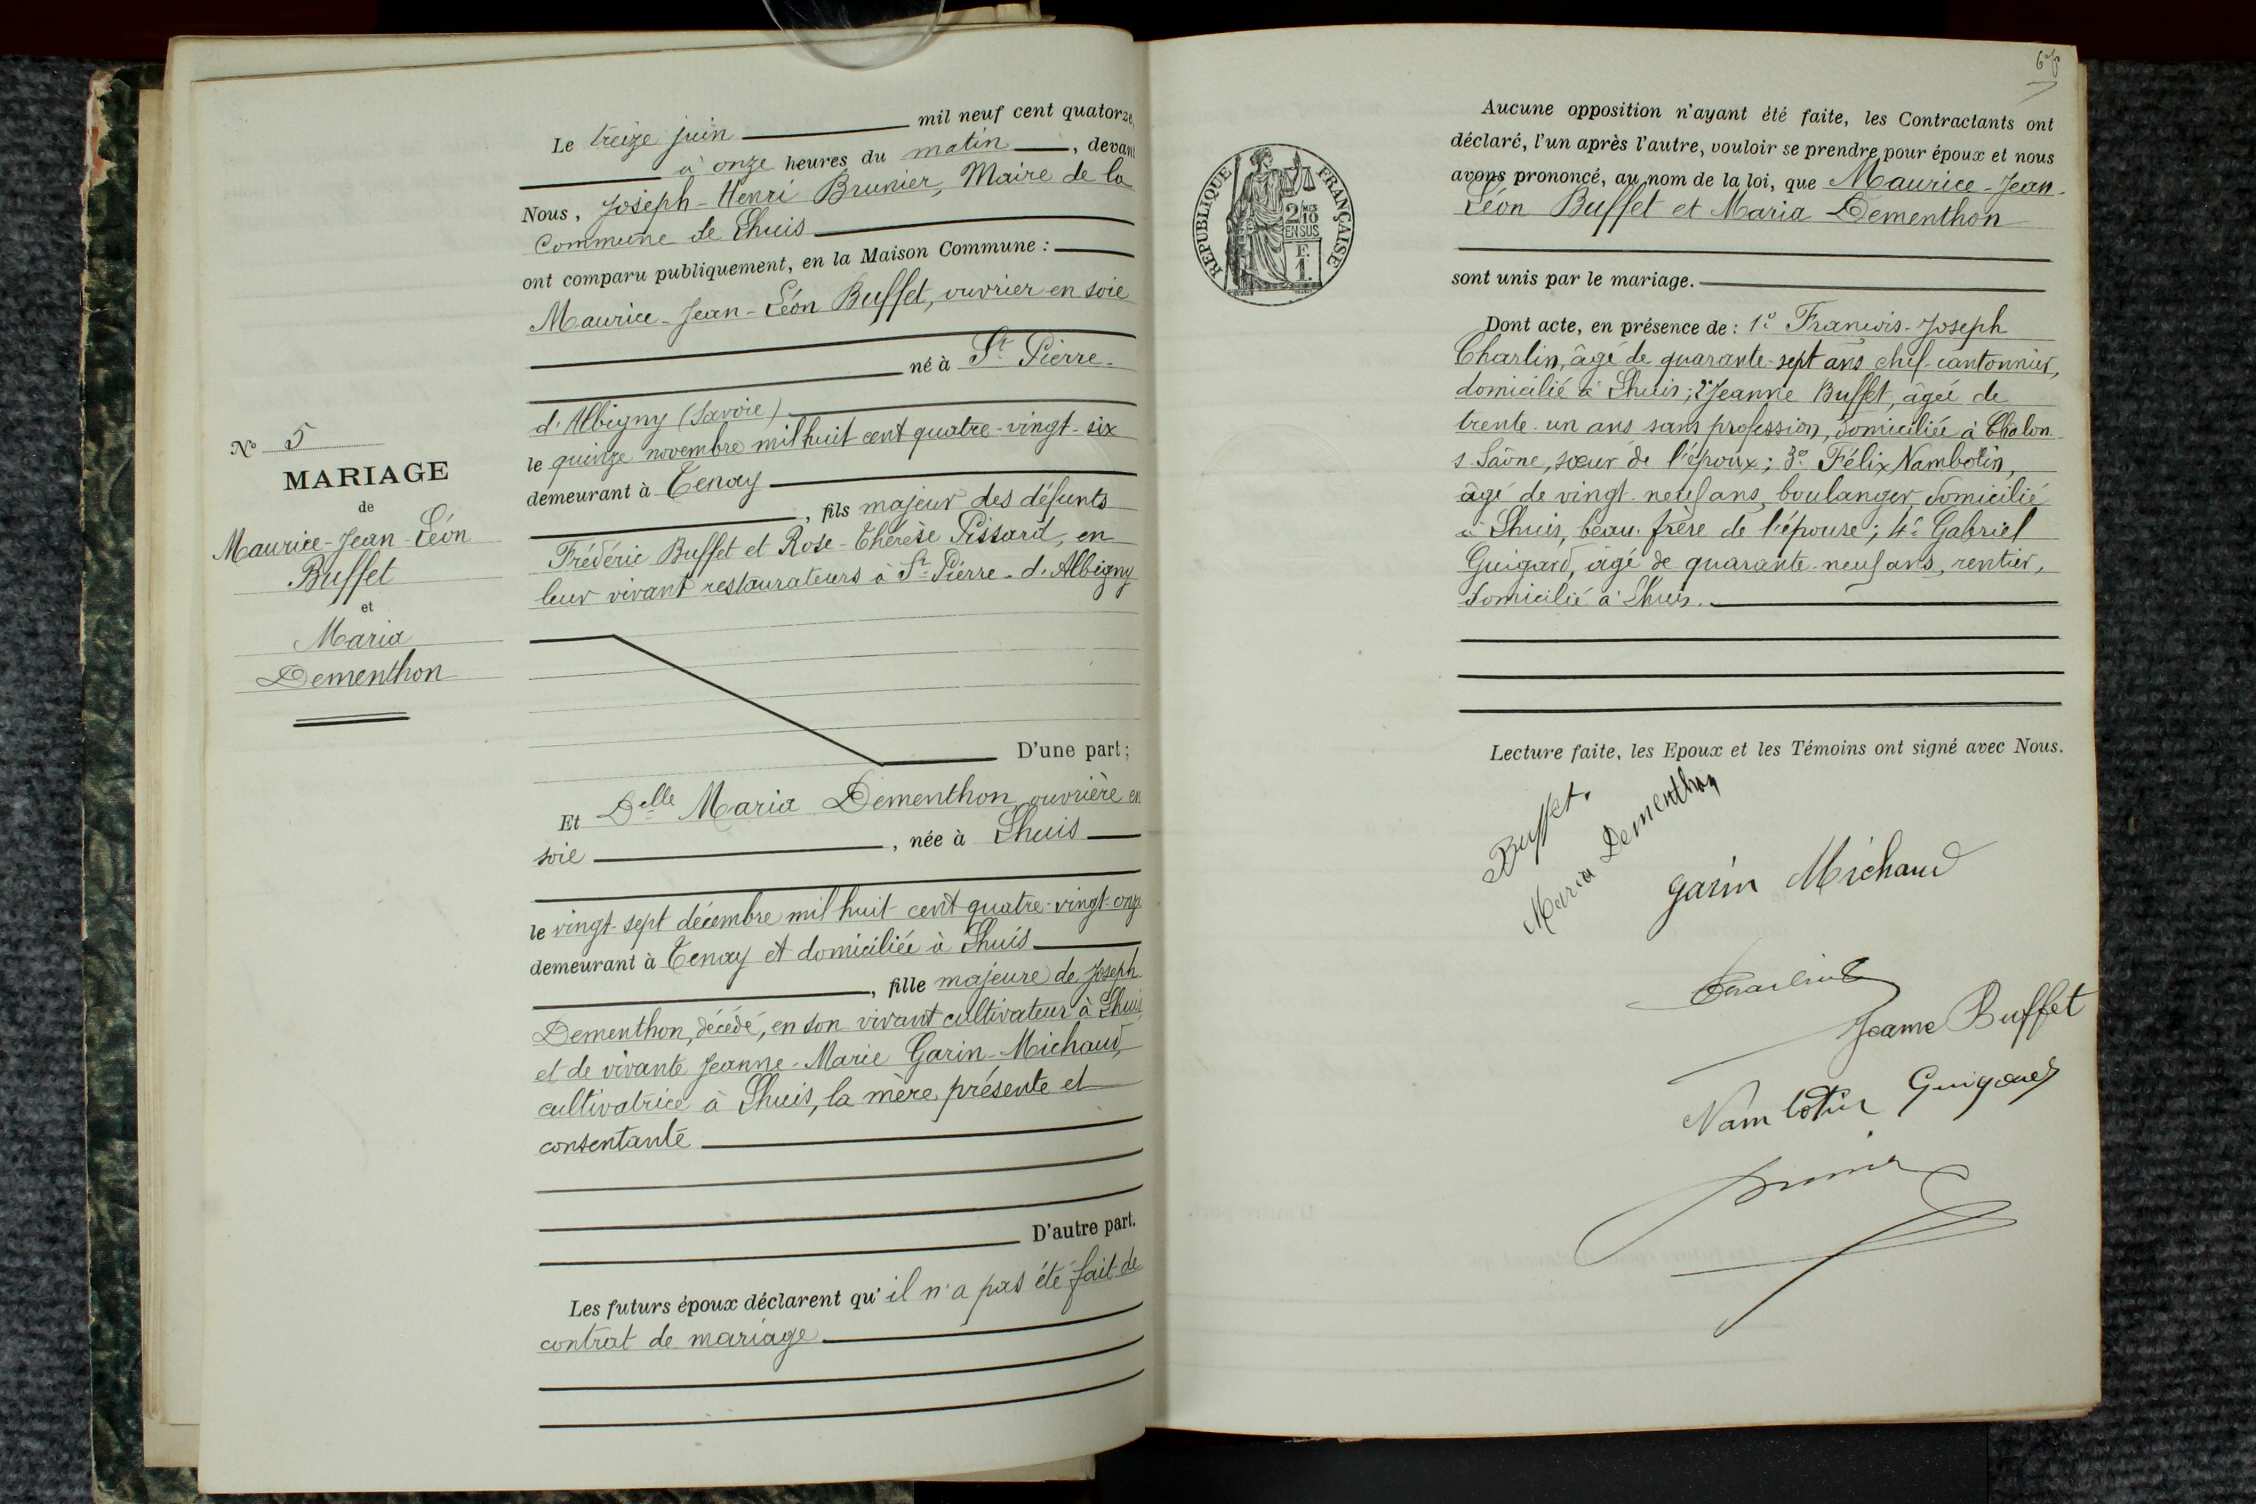 N° 5
MARIAGE
de
Maurice-Jean-Léon
Buffet
et
Maria
Dementhon
Le treize juin mil neuf cent quatorze,
à onze heures du matin, devant
Nous, Joseph-Henri Brunier, Maire de la
Commune de Lhuis
ont comparu publiquement, en la Maison Commune :
Maurice-Jean-Léon Buffet, ouvrier en soie
né à St Pierre-
d'Albigny (Savoie)
le quinze novembre mil huit cent quatre-vingt-six
demeurant à Tenay
, fils majeur des défunts
Frédéric Buffet et Rose-Thérèse Pissard, en
leur vivant restaurateurs à St Pierre-d'Albigny
D'une part ;
Et Delle Maria Dementhon, ouvrière en
soie, née à Lhuis
le vingt-sept décembre mil huit cent quatre-vingt-onze
demeurant à Tenay et domiciliée à Lhuis
, fille majeure de Joseph
Dementhon, décédé, en son vivant cultivateur à Lhuis,
et de vivante Jeanne-Marie Garin-Michaud,
cultivatrice à Lhuis, la mère présente et
consentante
D'autre part.
Les futurs époux déclarent qu'il n'a pas été fait de
contrat de mariage
RÉPUBLIQUE FRANÇAISE
2/10
EN SUS
F.
1.
Aucune opposition n'ayant été faite, les Contractants ont
déclaré, l'un après l'autre, vouloir se prendre pour époux et nous
avons prononcé, au nom de la loi, que Maurice-Jean-
Léon Buffet et Maria Dementhon
sont unis par le mariage.
Dont acte, en présence de : 1° François-Joseph
Charlin, âgé de quarante-sept ans chef-cantonnier,
domicilié à Lhuis; 2° Jeanne Buffet, âgée de
trente-un ans sans profession, domiciliée à Chalon
s Saône, sœur de l'époux; 3° Félix Nambotin,
âgé de vingt-neuf ans, boulanger, domicilié
à Lhuis, beau-frère de l'épouse; 4° Gabriel
Guigard, âgé de quarante-neuf ans, rentier,
domicilié à Lhuis.
Lecture faite, les Epoux et les Témoins ont signé avec Nous.
Buffet
Maria Dementhon
Garin Michaud
Charlin
Jeanne Buffet
Nambotin Guigard
Brunier